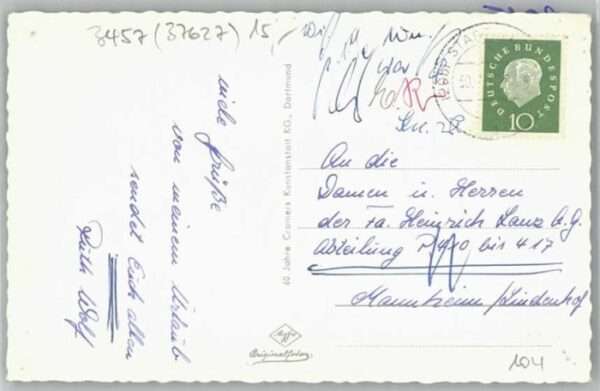 3457 (37627) 15,-
viele Grüße
von meinem Urlaub
sendet Euch allen
Ruth Wolf
40 Jahre Cramers Kunstanstalt KG., Dortmund
Agfa
Originalfoto
DEUTSCHE BUNDESPOST
10
An die
Damen u. Herren
der Fa. Heinrich Lanz A.G.
Abteilung P 410 bis 417
Mannheim/Lindenhof
104